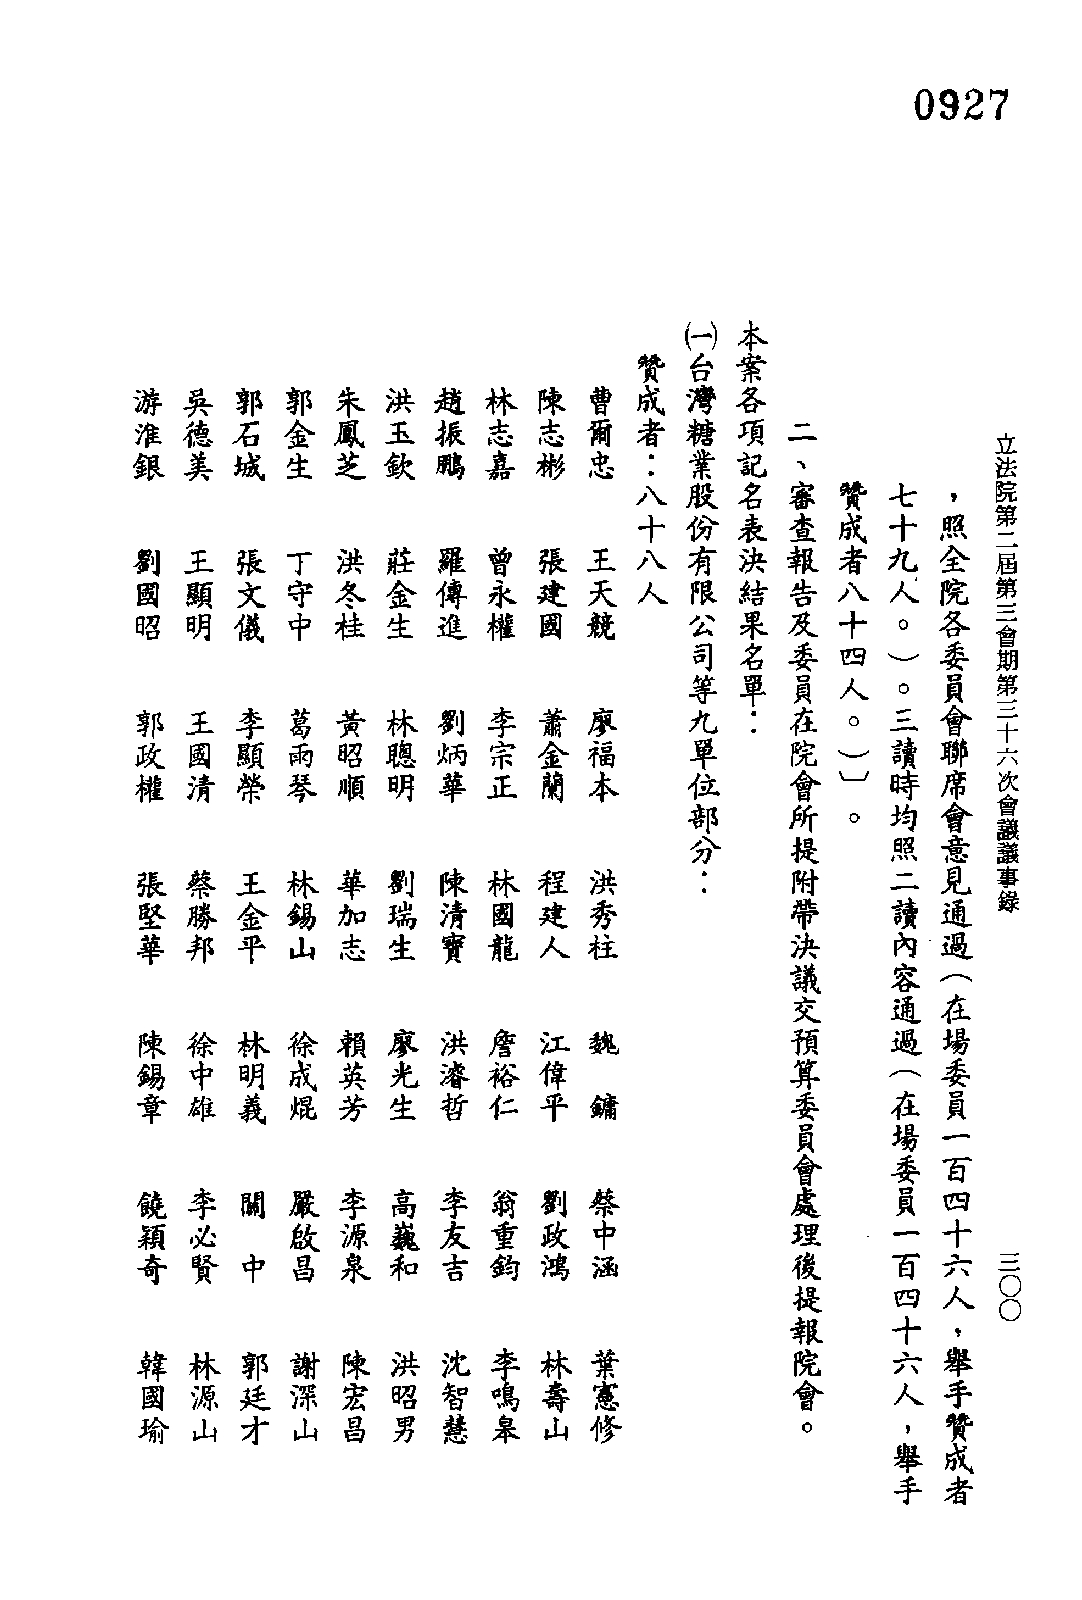 0927
立法院第二屆第三會期第三十六次會議議事錄　三〇〇
，照全院各委員會聯席會意見通過（在場委員一百四十六人，舉手贊成者
七十九人。）。三讀時均照二讀內容通過（在場委員一百四十六人，舉手
贊成者八十四人。）〕。
二、審查報告及委員在院會所提附帶決議交預算委員會處理後提報院會。
本案各項記名表決結果名單：
㈠台灣糖業股份有限公司等九單位部分：
贊成者：八十八人
曹爾忠　王天競　廖福本　洪秀柱　魏　鏞　蔡中涵　葉憲修
陳志彬　張建國　蕭金蘭　程建人　江偉平　劉政鴻　林壽山
林志嘉　曾永權　李宗正　林國龍　詹裕仁　翁重鈞　李鳴皋
趙振鵬　羅傳進　劉炳華　陳清寶　洪濬哲　李友吉　沈智慧
洪玉欽　莊金生　林聰明　劉瑞生　廖光生　高巍和　洪昭男
朱鳳芝　洪冬桂　黃昭順　華加志　賴英芳　李源泉　陳宏昌
郭金生　丁守中　葛雨琴　林錫山　徐成焜　嚴啟昌　謝深山
郭石城　張文儀　李顯榮　王金平　林明義　關　中　郭廷才
吳德美　王顯明　王國清　蔡勝邦　徐中雄　李必賢　林源山
游淮銀　劉國昭　郭政權　張堅華　陳錫章　饒穎奇　韓國瑜